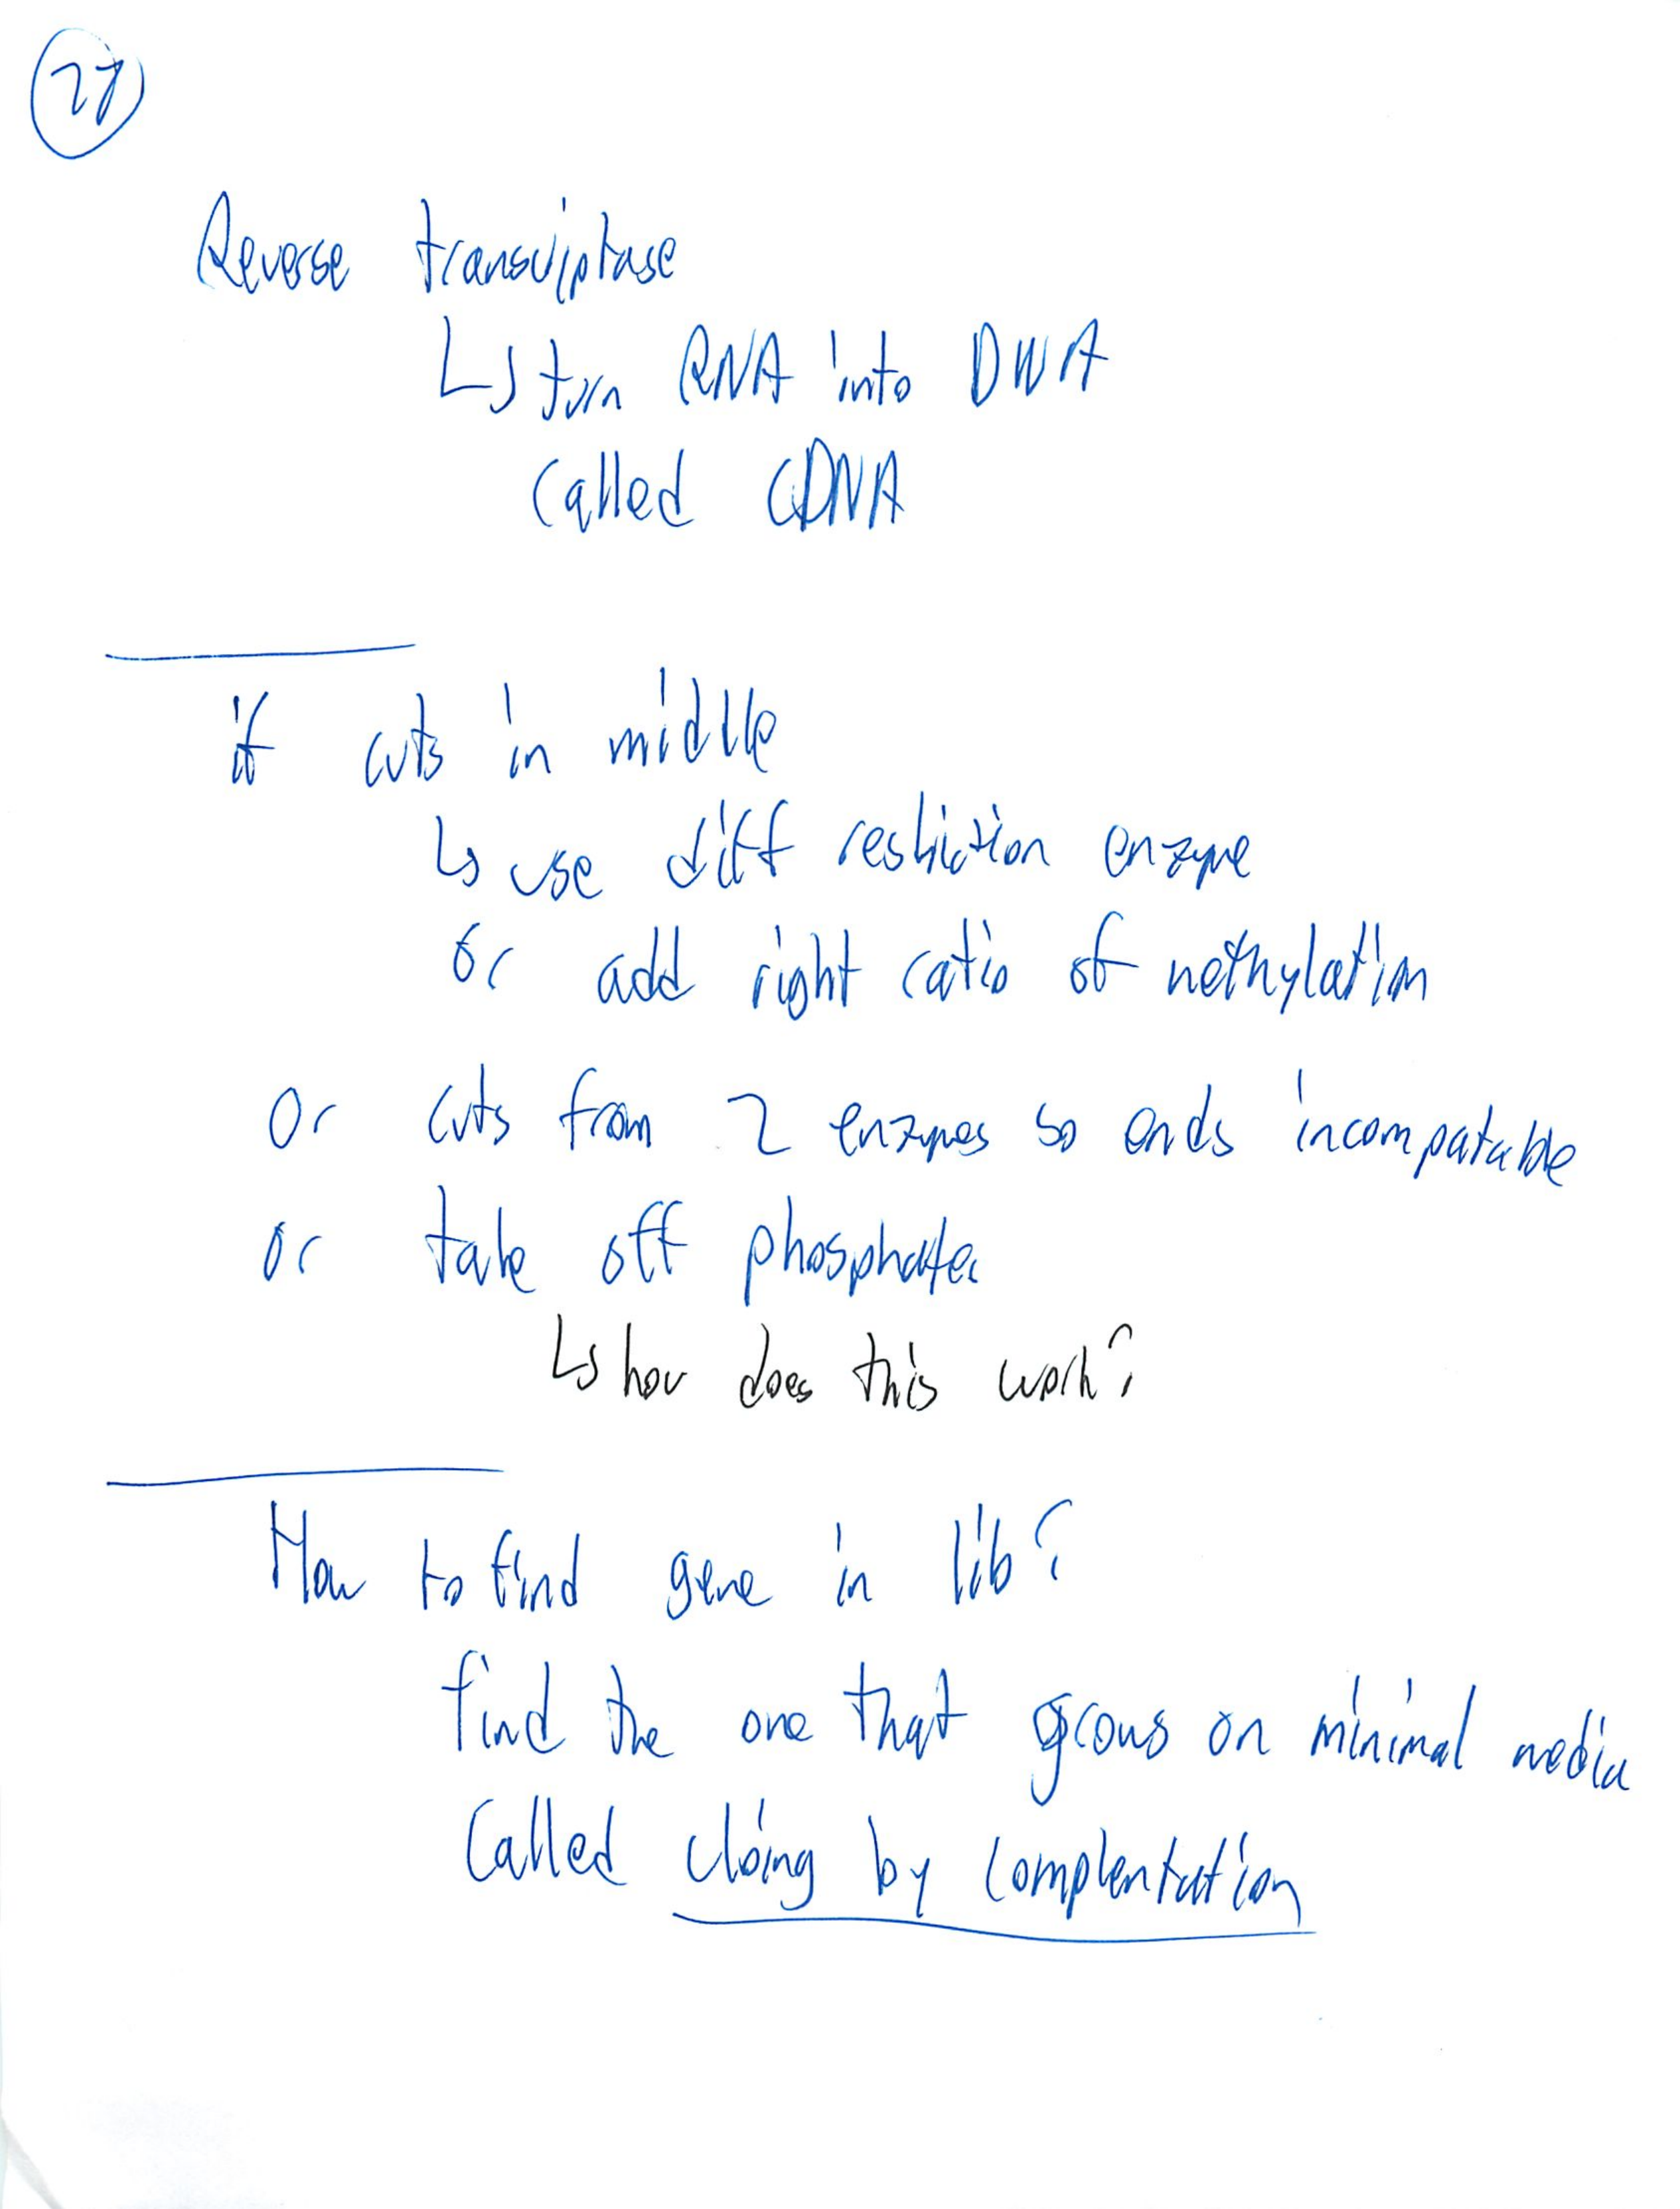 27
Reverse transciptase
↳ turn RNA into DNA
called cDNA
if cuts in middle
↳ use diff restriction enzyme
or add right ratio of methylation
Or cuts from 2 enzymes so ends incompatable
or take off phosphates
↳ how does this work?
How to find gene in lib?
find the one that grows on minimal media
Called cloing by complentation